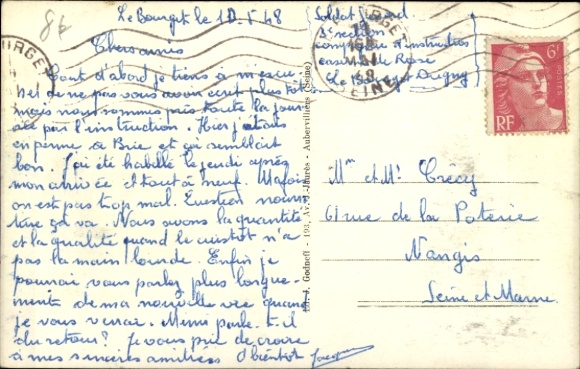 8f
Le Bourget le 10.5.48
Soldat
3e section
compagnie d'instruction
caserne de Rose
Le Bourget Dugny
Chers amis
Tout d'abord je tiens à m'excu
ser de ne pas vous avoir écrit plus tôt
mais nous sommes pris toute la jour
née par l'instruction. Hier j'étais
en perme à Brie et ça semblait
bon. J'ai été habillé le jeudi après
mon arrivée et tout à neuf. Ma foi
on est pas trop mal. Question nourri
ture ça va. Nous avons la quantité
et la qualité quand le cuistot n'a
pas la main lourde. Enfin je
pourrai vous parler plus longue-
ment de ma nouvelle vie quand
je vous verrai. Mimi parle-t-il
du retour? Je vous prie de croire
à mes sincères amitiés. A bientôt
Jacques
Edit. J. Godneff - 193, Av. J.-Jaurès - Aubervilliers (Seine)
LE BOURGET
SEINE
6f
POSTES
RF
Mme et Mr Crécy
61 rue de la Poterie
Nangis
Seine et Marne